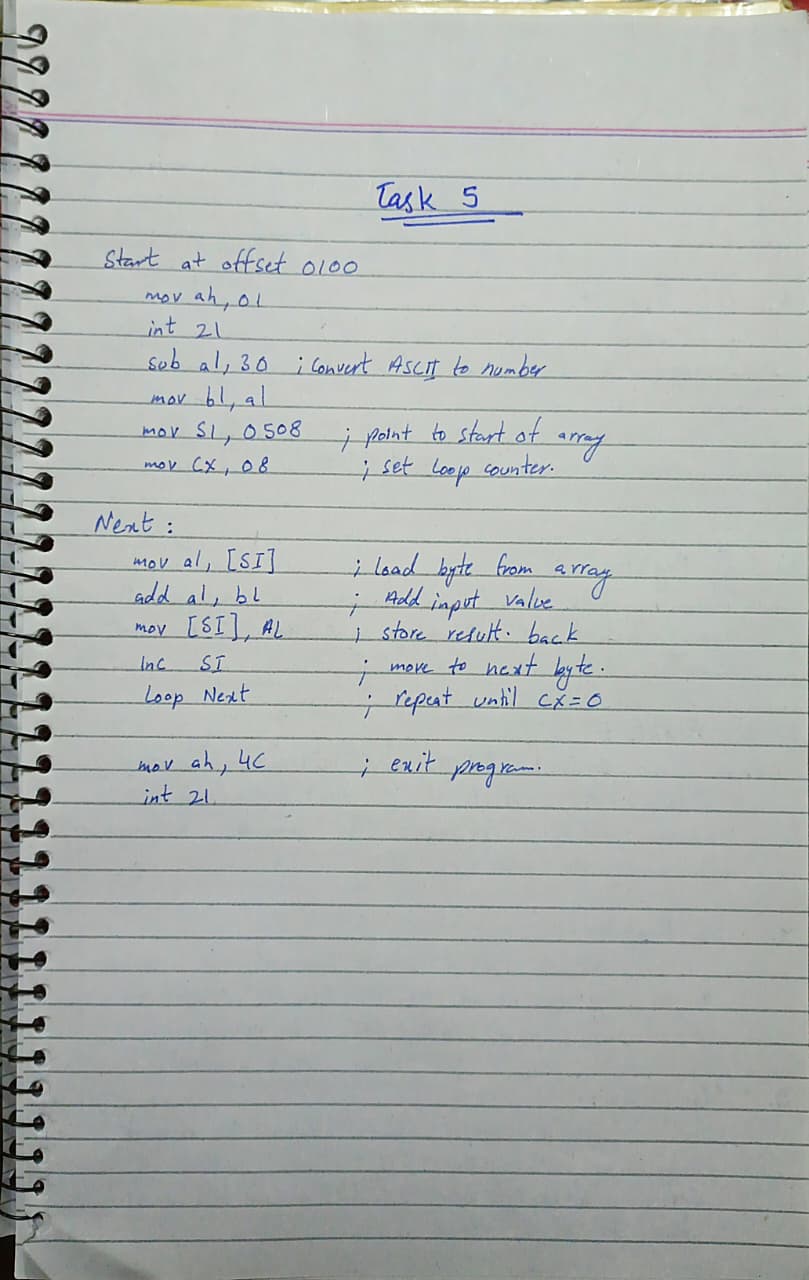 Task 5
Start at offset 0100
mov ah, 01
int 21
sub al, 30 ; Convert ASCII to number
mov bl, al
mov SI, 0508 ; point to start of array
mov CX, 08 ; set loop counter.
Next :
mov al, [SI] ; load byte from array
add al, bl ; Add input value
mov [SI], AL ; store result. back
Inc SI ; move to next byte.
Loop Next ; repeat until CX=0
mov ah, 4C ; exit program.
int 21